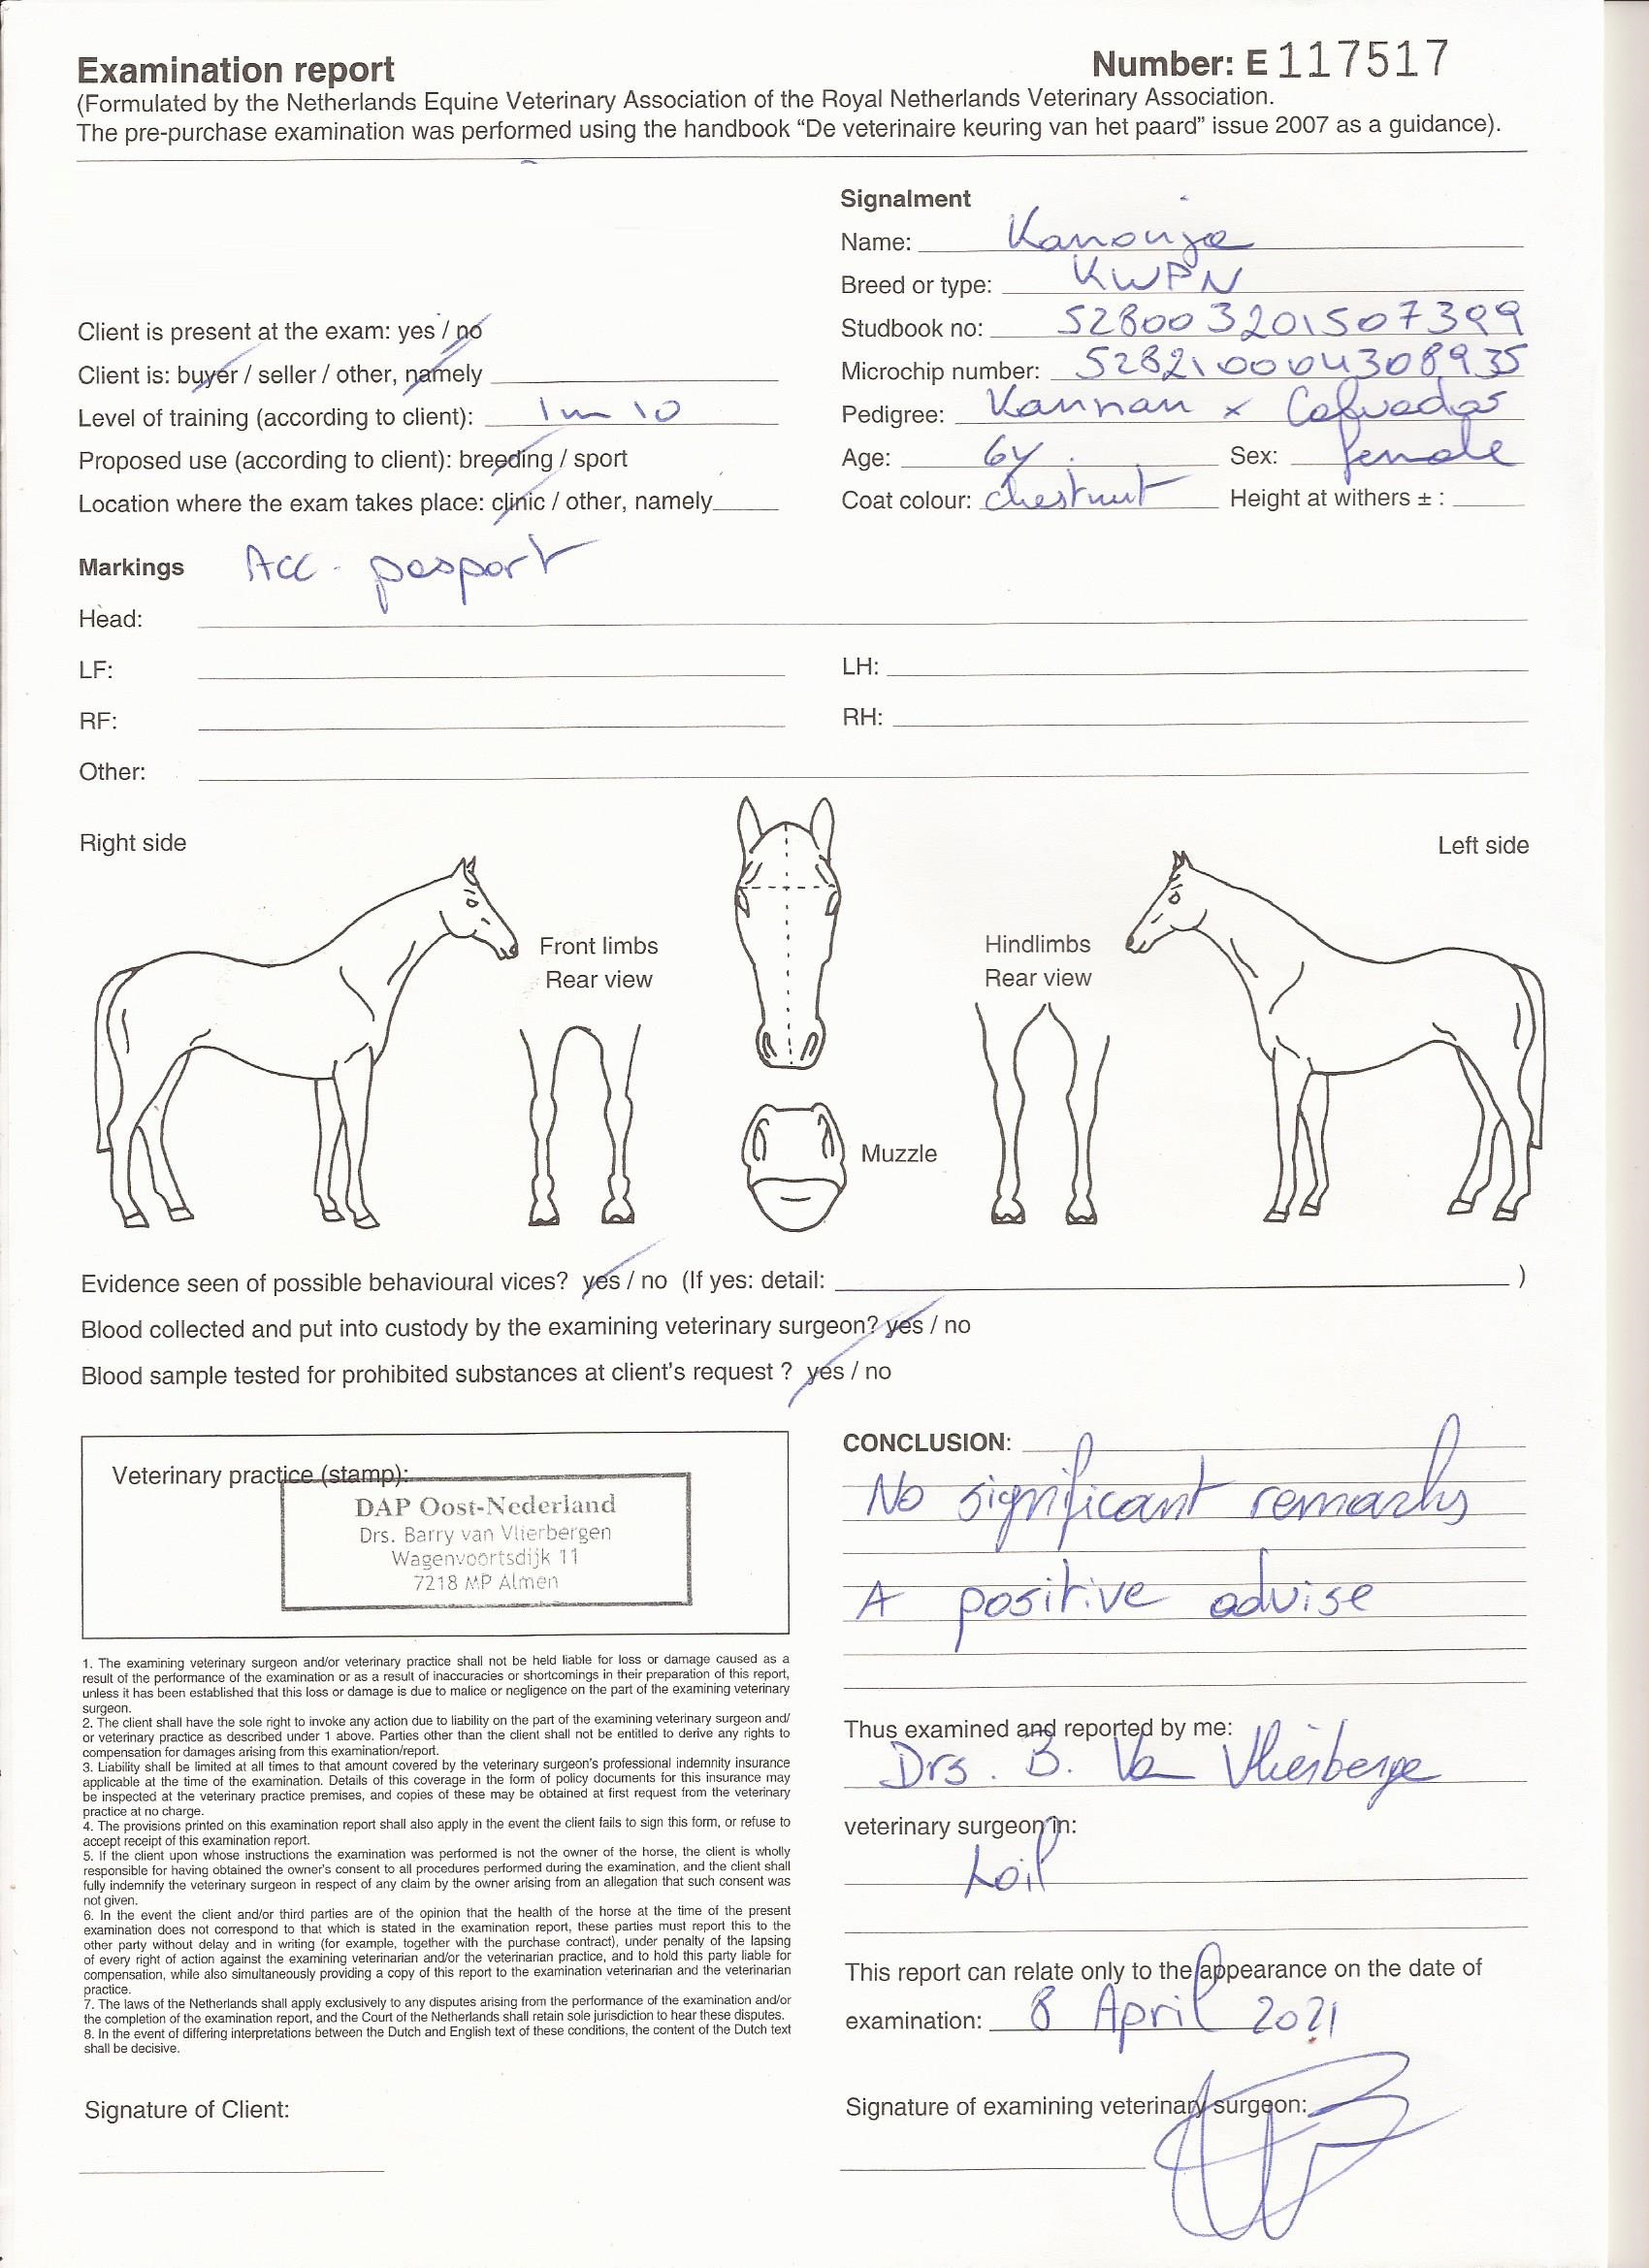 Examination report
Number: E 117517
(Formulated by the Netherlands Equine Veterinary Association of the Royal Netherlands Veterinary Association.
The pre-purchase examination was performed using the handbook “De veterinaire keuring van het paard” issue 2007 as a guidance).
Signalment
Name: Kanouja
Breed or type: KWPN
Client is present at the exam: yes / no
Studbook no: 528003201507399
Client is: buyer / seller / other, namely
Microchip number: 528210004308935
Level of training (according to client): 1m10
Pedigree: Kannan x Calvados
Proposed use (according to client): breeding / sport
Age: 6y. Sex: female
Location where the exam takes place: clinic / other, namely
Coat colour: chestnut Height at withers ± :
Markings Acc. pasport
Head:
LF: LH:
RF: RH:
Other:
Right side
Left side
Front limbs
Rear view
Hindlimbs
Rear view
Muzzle
Evidence seen of possible behavioural vices? yes / no (If yes: detail: )
Blood collected and put into custody by the examining veterinary surgeon? yes / no
Blood sample tested for prohibited substances at client's request ? yes / no
Veterinary practice (stamp):
DAP Oost-Nederland
Drs. Barry van Vlierbergen
Wagenvoortsdijk 11
7218 MP Almen
1. The examining veterinary surgeon and/or veterinary practice shall not be held liable for loss or damage caused as a
result of the performance of the examination or as a result of inaccuracies or shortcomings in their preparation of this report,
unless it has been established that this loss or damage is due to malice or negligence on the part of the examining veterinary
surgeon.
2. The client shall have the sole right to invoke any action due to liability on the part of the examining veterinary surgeon and/
or veterinary practice as described under 1 above. Parties other than the client shall not be entitled to derive any rights to
compensation for damages arising from this examination/report.
3. Liability shall be limited at all times to that amount covered by the veterinary surgeon's professional indemnity insurance
applicable at the time of the examination. Details of this coverage in the form of policy documents for this insurance may
be inspected at the veterinary practice premises, and copies of these may be obtained at first request from the veterinary
practice at no charge.
4. The provisions printed on this examination report shall also apply in the event the client fails to sign this form, or refuse to
accept receipt of this examination report.
5. If the client upon whose instructions the examination was performed is not the owner of the horse, the client is wholly
responsible for having obtained the owner's consent to all procedures performed during the examination, and the client shall
fully indemnify the veterinary surgeon in respect of any claim by the owner arising from an allegation that such consent was
not given.
6. In the event the client and/or third parties are of the opinion that the health of the horse at the time of the present
examination does not correspond to that which is stated in the examination report, these parties must report this to the
other party without delay and in writing (for example, together with the purchase contract), under penalty of the lapsing
of every right of action against the examining veterinarian and/or the veterinarian practice, and to hold this party liable for
compensation, while also simultaneously providing a copy of this report to the examination veterinarian and the veterinarian
practice.
7. The laws of the Netherlands shall apply exclusively to any disputes arising from the performance of the examination and/or
the completion of the examination report, and the Court of the Netherlands shall retain sole jurisdiction to hear these disputes.
8. In the event of differing interpretations between the Dutch and English text of these conditions, the content of the Dutch text
shall be decisive.
Signature of Client:
CONCLUSION:
No significant remarks
A positive advise
Thus examined and reported by me:
Drs. B. Van Vlierberge
veterinary surgeon in:
Loil
This report can relate only to the appearance on the date of
examination: 8 April 2021
Signature of examining veterinary surgeon: